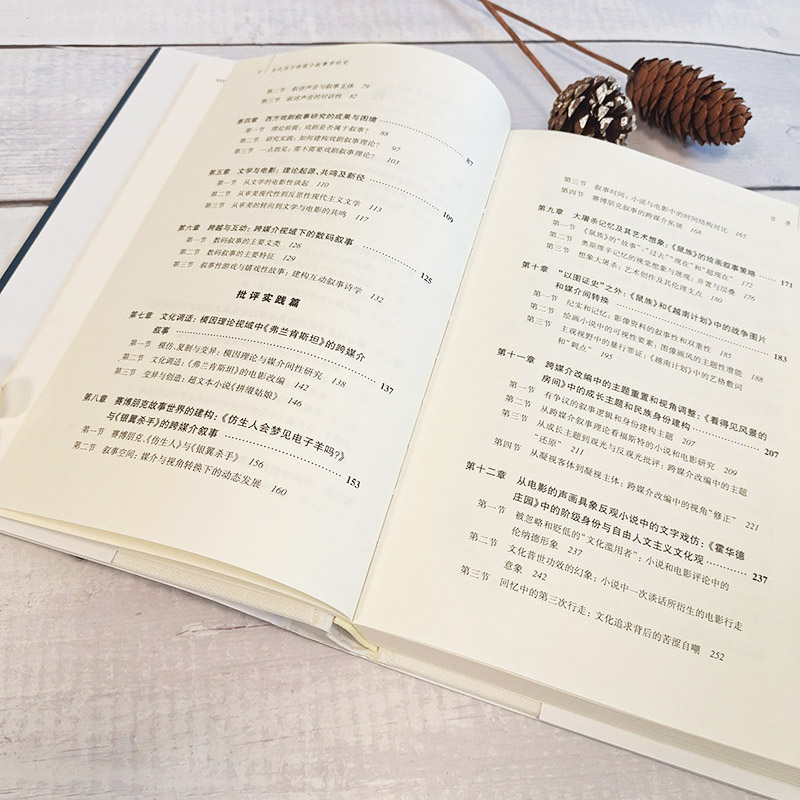 当代西方跨媒介叙事学研究
第二节 叙述声音与叙事主体 79
第三节 叙述声音的对话性 82
第四章 西方戏剧叙事研究的成果与困境 87
第一节 理论前提：戏剧是否属于叙事？ 88
第二节 研究实践：如何建构戏剧叙事理论？ 97
第三节 一点创见：需不需要戏剧叙事理论？ 103
第五章 文学与电影：理论起源、共鸣及新径 109
第一节 从文学的电影性谈起 110
第二节 从审美现代性到反思性现代主义文学 113
第三节 从审美的转向到文学与电影的共鸣 117
第六章 跨越与互动：跨媒介视域下的数码叙事 125
第一节 数码叙事的主要文类 126
第二节 数码叙事的主要特征 129
第三节 叙事性游戏与嬉戏性故事：建构互动叙事诗学 132
批评实践篇
第七章 文化调适：模因理论视域中《弗兰肯斯坦》的跨媒介
叙事 137
第一节 模仿、复制与变异：模因理论与媒介间性研究 138
第二节 文化调适：《弗兰肯斯坦》的电影改编 142
第三节 变异与创造：超文本小说《拼缀姑娘》 146
第八章 赛博朋克故事世界的建构：《仿生人会梦见电子羊吗？》
与《银翼杀手》的跨媒介叙事 153
第一节 赛博朋克、《仿生人》与《银翼杀手》 156
第二节 叙事空间：媒介与视角转换下的动态发展 160
目 录
第三节 叙事时间：小说与电影中的时间结构对比 165
第四节 赛博朋克叙事的跨媒介拓展 168
第九章 大屠杀记忆及其艺术想象：《鼠族》的绘画叙事策略 171
第一节 《鼠族》的“故事”：“过去”“现在”和“超现在” 172
第二节 奥斯维辛记忆的视觉想象与展现：并置与层叠 176
第三节 想象大屠杀：艺术创作及其伦理支点 180
第十章 “以图证史”之外：《鼠族》和《越南计划》中的战争图片
和媒介间转换 183
第一节 纪实和记忆：影像资料的叙事性和双重性 185
第二节 绘画小说中的可视性要素：图像画风的主题性潜能 188
第三节 主观视野中的暴行罪证：《越南计划》中的艺格敷词
和“刺点” 195
第十一章 跨媒介改编中的主题重置和视角调整：《看得见风景的
房间》中的成长主题和民族身份建构 207
第一节 有争议的叙事逻辑和身份建构主题 207
第二节 从跨媒介叙事理论看福斯特的小说和电影研究 209
第三节 从成长主题到观光与反观光批评：跨媒介改编中的主题
“还原” 211
第四节 从凝视客体到凝视主体：跨媒介改编中的视角“修正” 221
第十二章 从电影的声画具象反观小说中的文字戏仿：《霍华德
庄园》中的阶级身份与自由人文主义文化观 237
第一节 被忽略和贬低的“文化滥用者”：小说和电影评论中的
伦纳德形象 237
第二节 文化普世功效的幻象：小说中一次谈话所衍生的电影行走
意象 242
第三节 回忆中的第三次行走：文化追求背后的苦涩自嘲 252